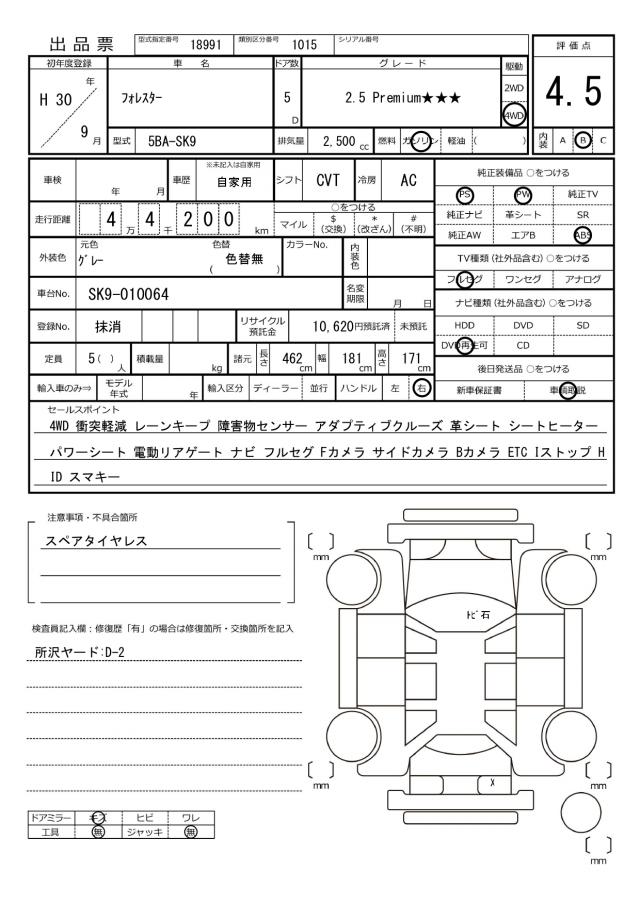 出品票 型式指定番号 18991 類別区分番号 1015 シリアル番号
評価点
4.5
内装 A B C
初年度登録 車名 ドア数 グレード 駆動
H 30 年 9 月
フォレスター 5 D 2.5 Premium★★★ 2WD 4WD
型式 5BA-SK9 排気量 2,500 cc 燃料 ガソリン 軽油 ( )
車検 年 月 車歴 ※未記入は自家用 自家用 シフト CVT 冷房 AC
走行距離 4 万 4 千 2 0 0 km
○をつける
マイル $(交換) *(改ざん) #(不明)
外装色 元色 グレー 色替 ( 色替無 ) カラーNo. 内装色
車台No. SK9-010064 名変期限 月 日
登録No. 抹消 リサイクル預託金 10,620円預託済 未預託
定員 5( )人 積載量 kg 諸元 長さ 462cm 幅 181cm 高さ 171cm
輸入車のみ⇒ モデル年式 年 輸入区分 ディーラー 並行 ハンドル 左 右
純正装備品 ○をつける
PS PW 純正TV
純正ナビ 革シート SR
純正AW エアB ABS
TV種類(社外品含む)○をつける
フルセグ ワンセグ アナログ
ナビ種類(社外品含む)○をつける
HDD DVD SD
DVD再生可 CD
後日発送品 ○をつける
新車保証書 車輌取説
セールスポイント
4WD 衝突軽減 レーンキープ 障害物センサー アダプティブクルーズ 革シート シートヒーター
パワーシート 電動リアゲート ナビ フルセグ Fカメラ サイドカメラ Bカメラ ETC Iストップ H
ID スマキー
注意事項・不具合箇所
スペアタイヤレス
検査員記入欄：修復歴「有」の場合は修復箇所・交換箇所を記入
所沢ヤード:D-2
ドアミラー キズ ヒビ ワレ
工具 無 ジャッキ 無
〔 〕mm 〔 〕mm
トビ石
〔 〕mm 〔 〕mm
X
〔 〕mm